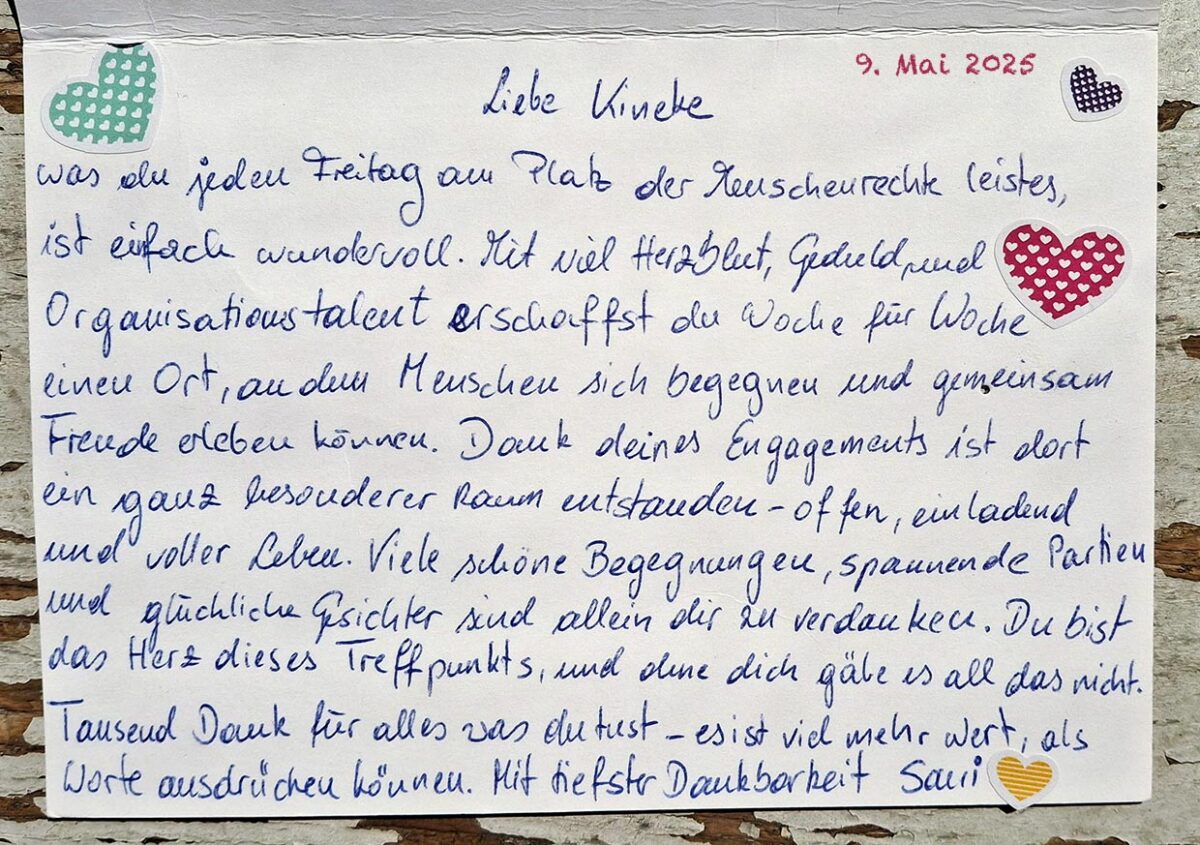 9. Mai 2025
Liebe Kineke
was du jeden Freitag am Platz der Menschenrechte leistes,
ist einfach wundervoll. Mit viel Herzblut, Geduld, und
Organisationstalent erschaffst du Woche für Woche
einen Ort, an dem Menschen sich begegnen und gemeinsam
Freude erleben können. Dank deines Engagements ist dort
ein ganz besonderer Raum entstanden – offen, einladend
und voller Leben. Viele schöne Begegnungen, spannende Partien
und glückliche Gesichter sind allein dir zu verdanken. Du bist
das Herz dieses Treffpunkts, und ohne dich gäbe es all das nicht.
Tausend Dank für alles was du tust – es ist viel mehr wert, als
Worte ausdrücken können. Mit tiefster Dankbarkeit Sauri